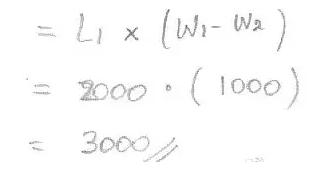 = L1 × (W1 - W2)
= 2000 • (1000)
= 3000 //